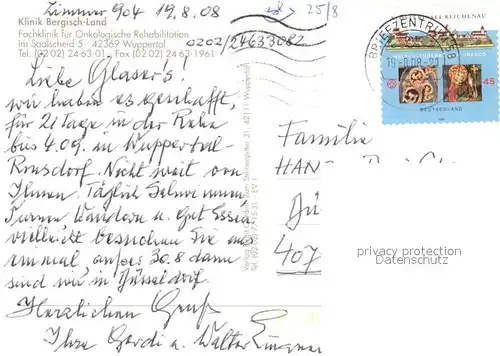 Zimmer 904 19.8.08
Klinik Bergisch-Land
Fachklinik für Onkologische Rehabilitation
Im Saalscheid 5 · 42369 Wuppertal
Tel. (02 02) 2463-0 Fax (02 02) 24 63-1961
0202/24633082
25/8
Liebe Glaser's!
wir haben es geschafft,
für 21 Tage in der Reha
bis 4.09. in Wuppertal-
Ronsdorf. Nicht weit von
Ihnen. Täglich Schwimmen,
Turnen Wandern u. gut Essen,
vielleicht besuchen Sie uns
einmal außer 30.8 dann
sind wir in Düsseldorf.
Herzlichen Gruß
Ihre Gerdi u. Walter
BRIEFZENTRUM 58
45
DEUTSCHLAND
Familie
HAN
Dü
407
privacy protection
Datenschutz